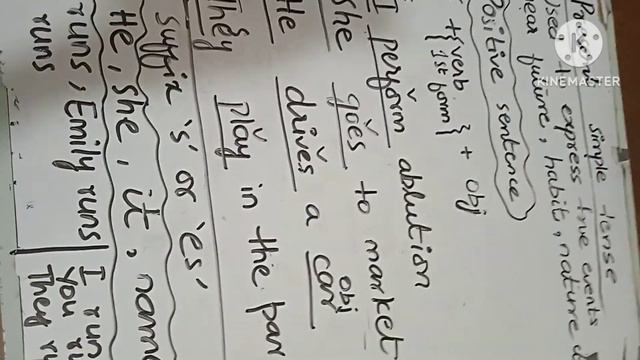 Present simple tense
to express true events
future, habit, nature
Positive sentence
+ {verb } + obj
{1st form}
I perform ablution
She goes to market
He drives a car
obj
They play in the par
suffix 's' or 'es'
He, she, it, name
runs, Emily runs | I run
runs You ru
They ru
KINEMASTER